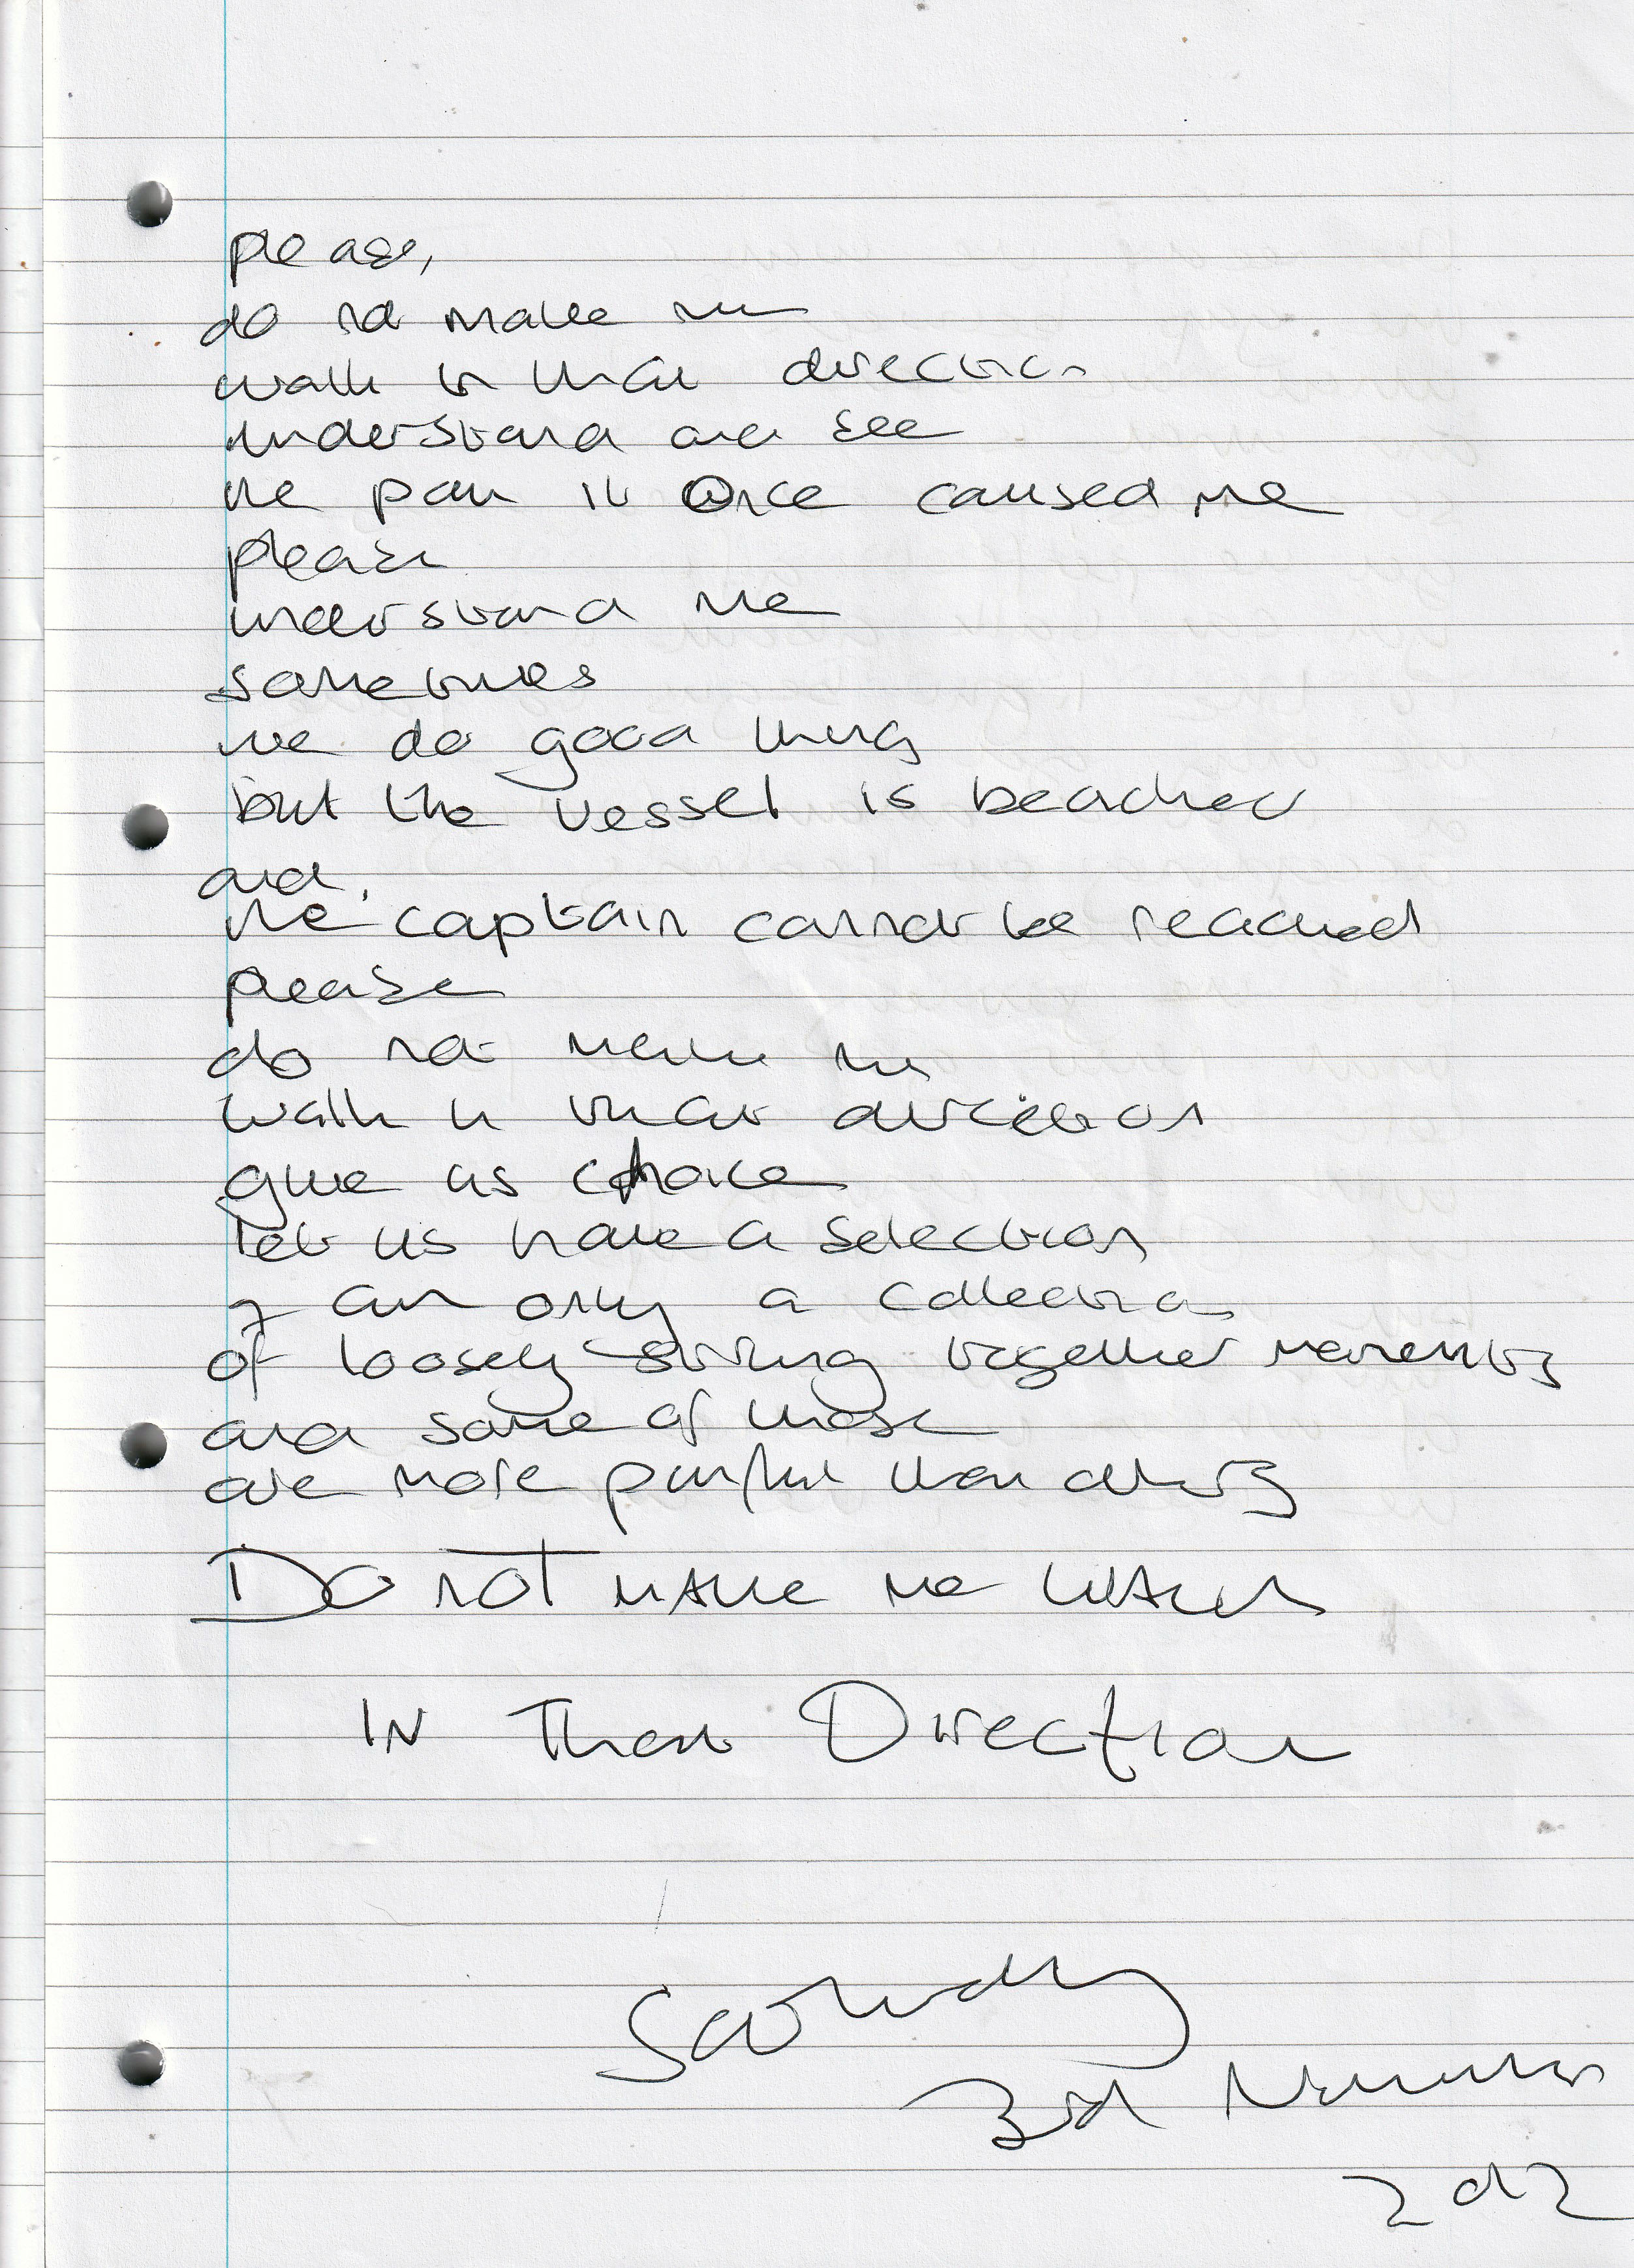 please,
do not make me
walk in that direction
understand and see
the pain it once caused me
please
understand me
sometimes
we do good things
but the vessel is beached
and
the captain cannot be reached
please
do not make me
walk in that direction
give us choice
let us have a selection
I am only a collection
of loosely string together moments
and some of those
are more painful than others
Do not make me walk
IN That Direction
Saturday
3rd November
2012